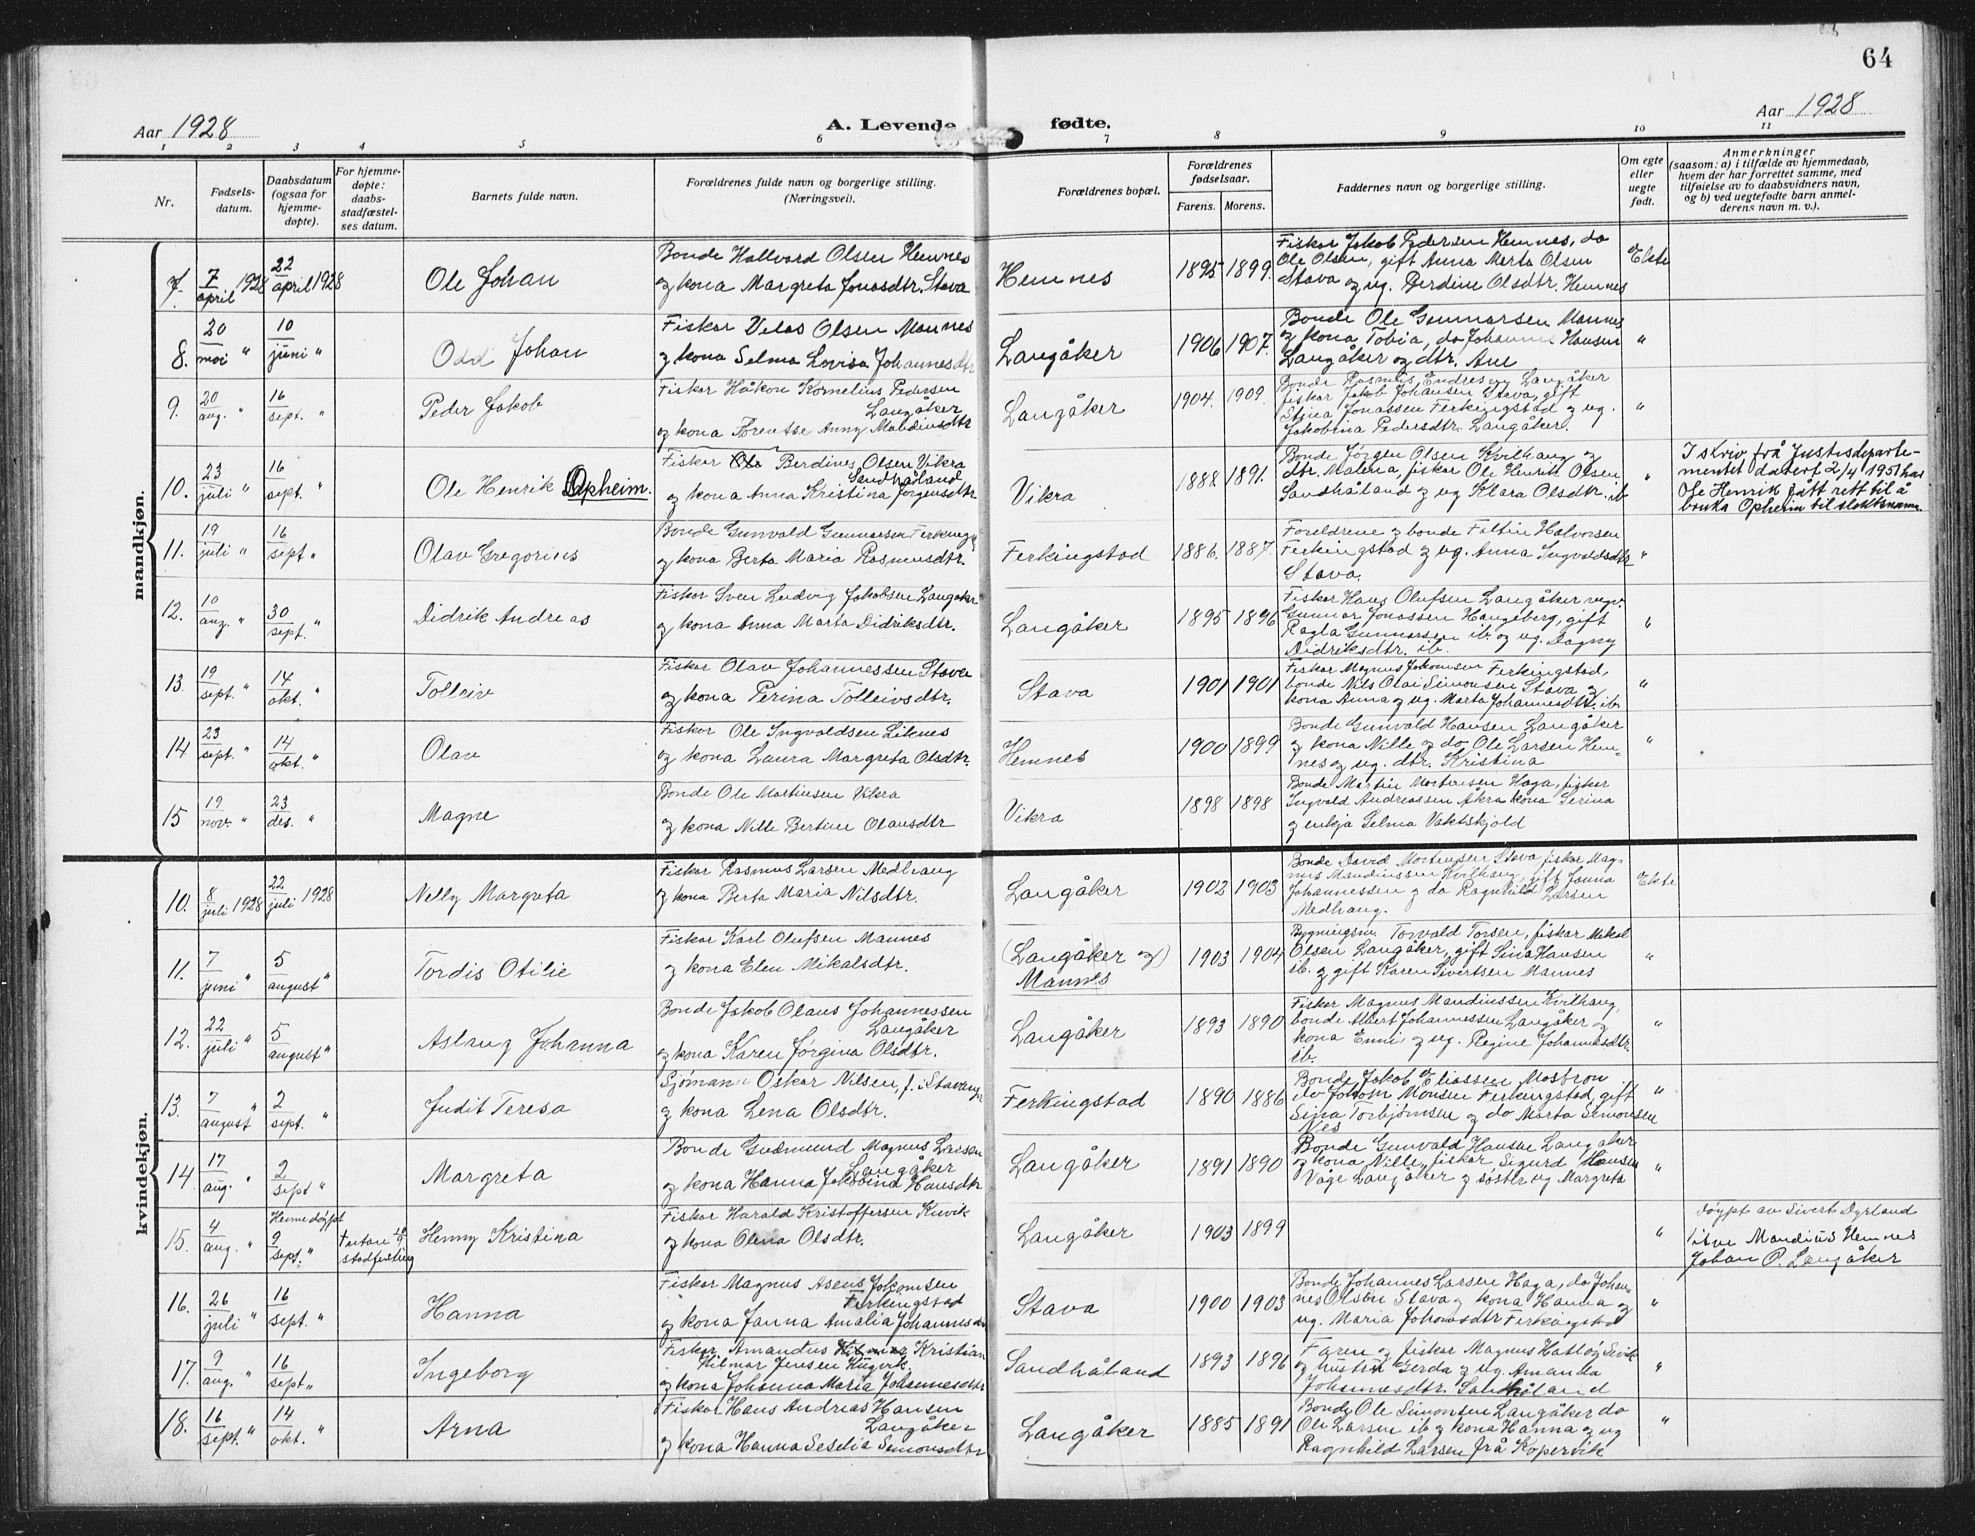 64
Aar 1928
A. Levende fødte.
Aar 1928
1 2 3 4 5 6 7 8 9 10 11
Nr.
Fødsels-
datum.
Daabsdatum
(ogsaa for
hjemme-
døpte).
For hjemme-
døpte:
daabs-
stadfæstel-
ses datum.
Barnets fulde navn.
Forældrenes fulde navn og borgerlige stilling.
(Næringsvei).
Forældrenes bopæl.
Forældrenes
fødselsaar.
Farens. Morens.
Faddernes navn og borgerlige stilling.
Om egte
eller
uegte
født.
Anmerkninger
(saasom: a) i tilfælde av hjemmedaab,
hvem der har forrettet samme, med
tilføielse av to daabsvidners navn,
og b) ved uegtefødte barn anmel-
derens navn m. v.).
mandkjøn.
7. 7/april 1928 22/april 1928 Ole Johan
Bonde Hallvard Olsen Hemnes
og kona Margreta Jonasdtr. Stava
Hemnes 1895 1899
Fisker Jakob Pedersen Hemnes, do
Ole Olsen, gift Anna Marta Olsen
Stava og ug. Berdine Olsdtr. Hemnes
Ekte
8. 20/mai " 10/juni " Odd Johan
Fisker Velas Olsen Mannes
og kona Selma Lovisa Johannesdtr
Langåker 1906 1907.
Bonde Ole Gunnarsen Mannes
og kona Tobia, do Johannes Hansen
Langåker og dtr. Ane
"
9. 20/aug. " 16/sept. " Peder Jakob
Fisker Håkon Kornelius Pedersen
Langåker
og kona Florentse Anny Mandiusdtr
Langåker 1904. 1909.
Bonde Rasmus Endresen Langåker
fisker Jakob Johansen Stava, gift
Stina Jonassen Ferkingstad og ug.
Jakobina Pedersdtr. Langåker.
"
10. 23/juli " 16/sept. " Ole Henrik Opheim.
Fisker Berdines Olsen Vikra
Sandhåland
og kona Anna Kristina Jørgensdtr
Vikra 1888 1891.
Bonde Jørgen Olsen Kvilhaug og
dtr. Malena, fisker Ole Henrik Olsen
Sandhåland og ug Klara Olsdtr. ib
"
I skriv frå Justisdeparte-
mentet datert 2/4 1951 har
Ole Henrik fått rett til å
bruka Opheim til slektsnamn
11. 19/juli " 16/sept " Olav Gregorius
Bonde Gunvald Gunnarsen Ferkingst
og kona Berta Maria Rasmusdtr.
Ferkingstad 1886. 1887.
Foreldrene og bonde Feltin Halvorsen
Ferkingstad og ug. Anna Ingvaldsdtr
Stava.
"
12. 10/aug. " 30/sept. " Didrik Andreas
Fisker Sven Ludvig Jakobsen Langåker
og kona Anna Marta Didriksdtr.
Langåker 1895 1896
Fisker Hans Olufsen Langåker
Gunnar Jonassen Haugeberg, gift
Ragla Gunnarsen ib. og ug. Dagny
Didriksdtr. ib.
"
13. 19/sept. " 14/okt. " Tolleiv
Fisker Olav Johannessen Stava
og kona Perina Tolleivsdtr.
Stava 1901 1901
Fisker Magnus Johansen Ferkingstad,
bonde Nils Olai Simonsen Stava og
kona Anna og ug. Marta Johannesdtr. ib.
"
14 23/sept. " 14/okt. " Olav
Fisker Ole Ingvaldsen Liknes
og kona Laura Margreta Olsdtr.
Hemnes 1900 1899
Bonde Gunvald Hansen Langåker
og kona Nille og do Ole Larsen Hem-
nes og ug. dtr. Kristina
"
15 19/nov. " 23/des. " Magne
Bonde Ole Martinsen Vikra
og kona Nille Bertine Olausdtr
Vikra 1898 1898
Bonde Martin Mortensen Haga, fisker
Ingvald Andreassen Åkra kona Serina
og enkja Selma Vaktskjold
kvindekjøn.
10. 8/juli 1928 22/juli 1928 Nelly Margreta
Fisker Rasmus Larsen Medhaug
og kona Berta Maria Nilsdtr.
Langåker 1902 1903
Bonde David Mortensen Stava fisker Mag-
nus Mandiussen Kvilhaug, gift Janna
Johannessen og do Ragnhild Larsen
Medhaug.
Ekte
11. 7/juni " 5/august " Tordis Otilie
Fisker Karl Olufsen Mannes
og kona Elen Mikalsdtr.
(Langåker og)
Mannes
1903 1904
Bygningsm Torvald Torsen, fisker Mikal
Olsen Langåker, gift Sina Hansen
ib. og gift Karen Sivertsen Mannes
"
12. 22/juli " 5/august " Aslaug Johanna
Bonde Jakob Olaus Johannessen
Langåker
og kona Karen Jørgina Olsdtr.
Langåker 1893 1890
Fisker Magnus Mandiussen Kvilhaug,
bonde Albert Johannessen Langåker og
kona Enne og ug. Regine Johannesdtr.
ib.
"
13. 7/august " 2/sept. " Judit Teresa
Sjømann Oskar Nilsen, f. i Stavanger
og kona Lena Olsdtr.
Ferkingstad 1890 1886
Bonde Jakob Eliassen Mosbron
do Johan Monsen Ferkingstad, gift
Sina Torbjørnsen og do Marta Simonsen
Nes
"
14. 17/aug. " 2/sept " Margreta
Bonde Gudmund Magnus Larsen
Langåker
og kona Hanna Jakobina Hansdtr
Langåker 1891 1890
Bonde Gunvald Hanske Langåker
og kona Nille, fisker Sigurd Hansen
Våge Langåker og søster ug Margreta
"
15. 4/aug. " Heimedøypt 9/sept. " stadfesting Henny Kristina
Fisker Harald Kristoffersen Kuvik
og kona Olena Olsdtr.
Langåker 1903 1899
"
døypt av Sivert Dyrland
Mandius Hemnes
Johan P. Langåker
16. 26/juli " 16/sept. " Hanna
Fisker Magnus Asens Johansen
Ferkingstad
og kona Janna Amalia Johannesdtr
Stava 1900 1903
Bonde Johannes Larsen Haga, do Johan-
nes Olsen Stava og kona Hanna og
ug. Maria Johansdtr Ferkingstad
"
17. 9/aug. " 16/sept " Ingeborg
Fisker Amandus Kristian
Hilmar Jensen Hugvik
og kona Johanna Maria Johannesdtr
Sandhåland 1893 1896
Faren og fisker Magnus Hatløy
og hustru Gerda og ug. Amanda
Johannesdtr. Sandhåland
"
18. 16/sept. " 14/okt. " Arna
Fisker Hans Andreas Hansen
Langåker
og kona Hanna Seselia Simonsdtr
Langåker 1885 1891
Bonde Ole Simonsen Langåker do
Ole Larsen ib og kona Hanna og ug
Ragnhild Larsen frå Kopervik
"